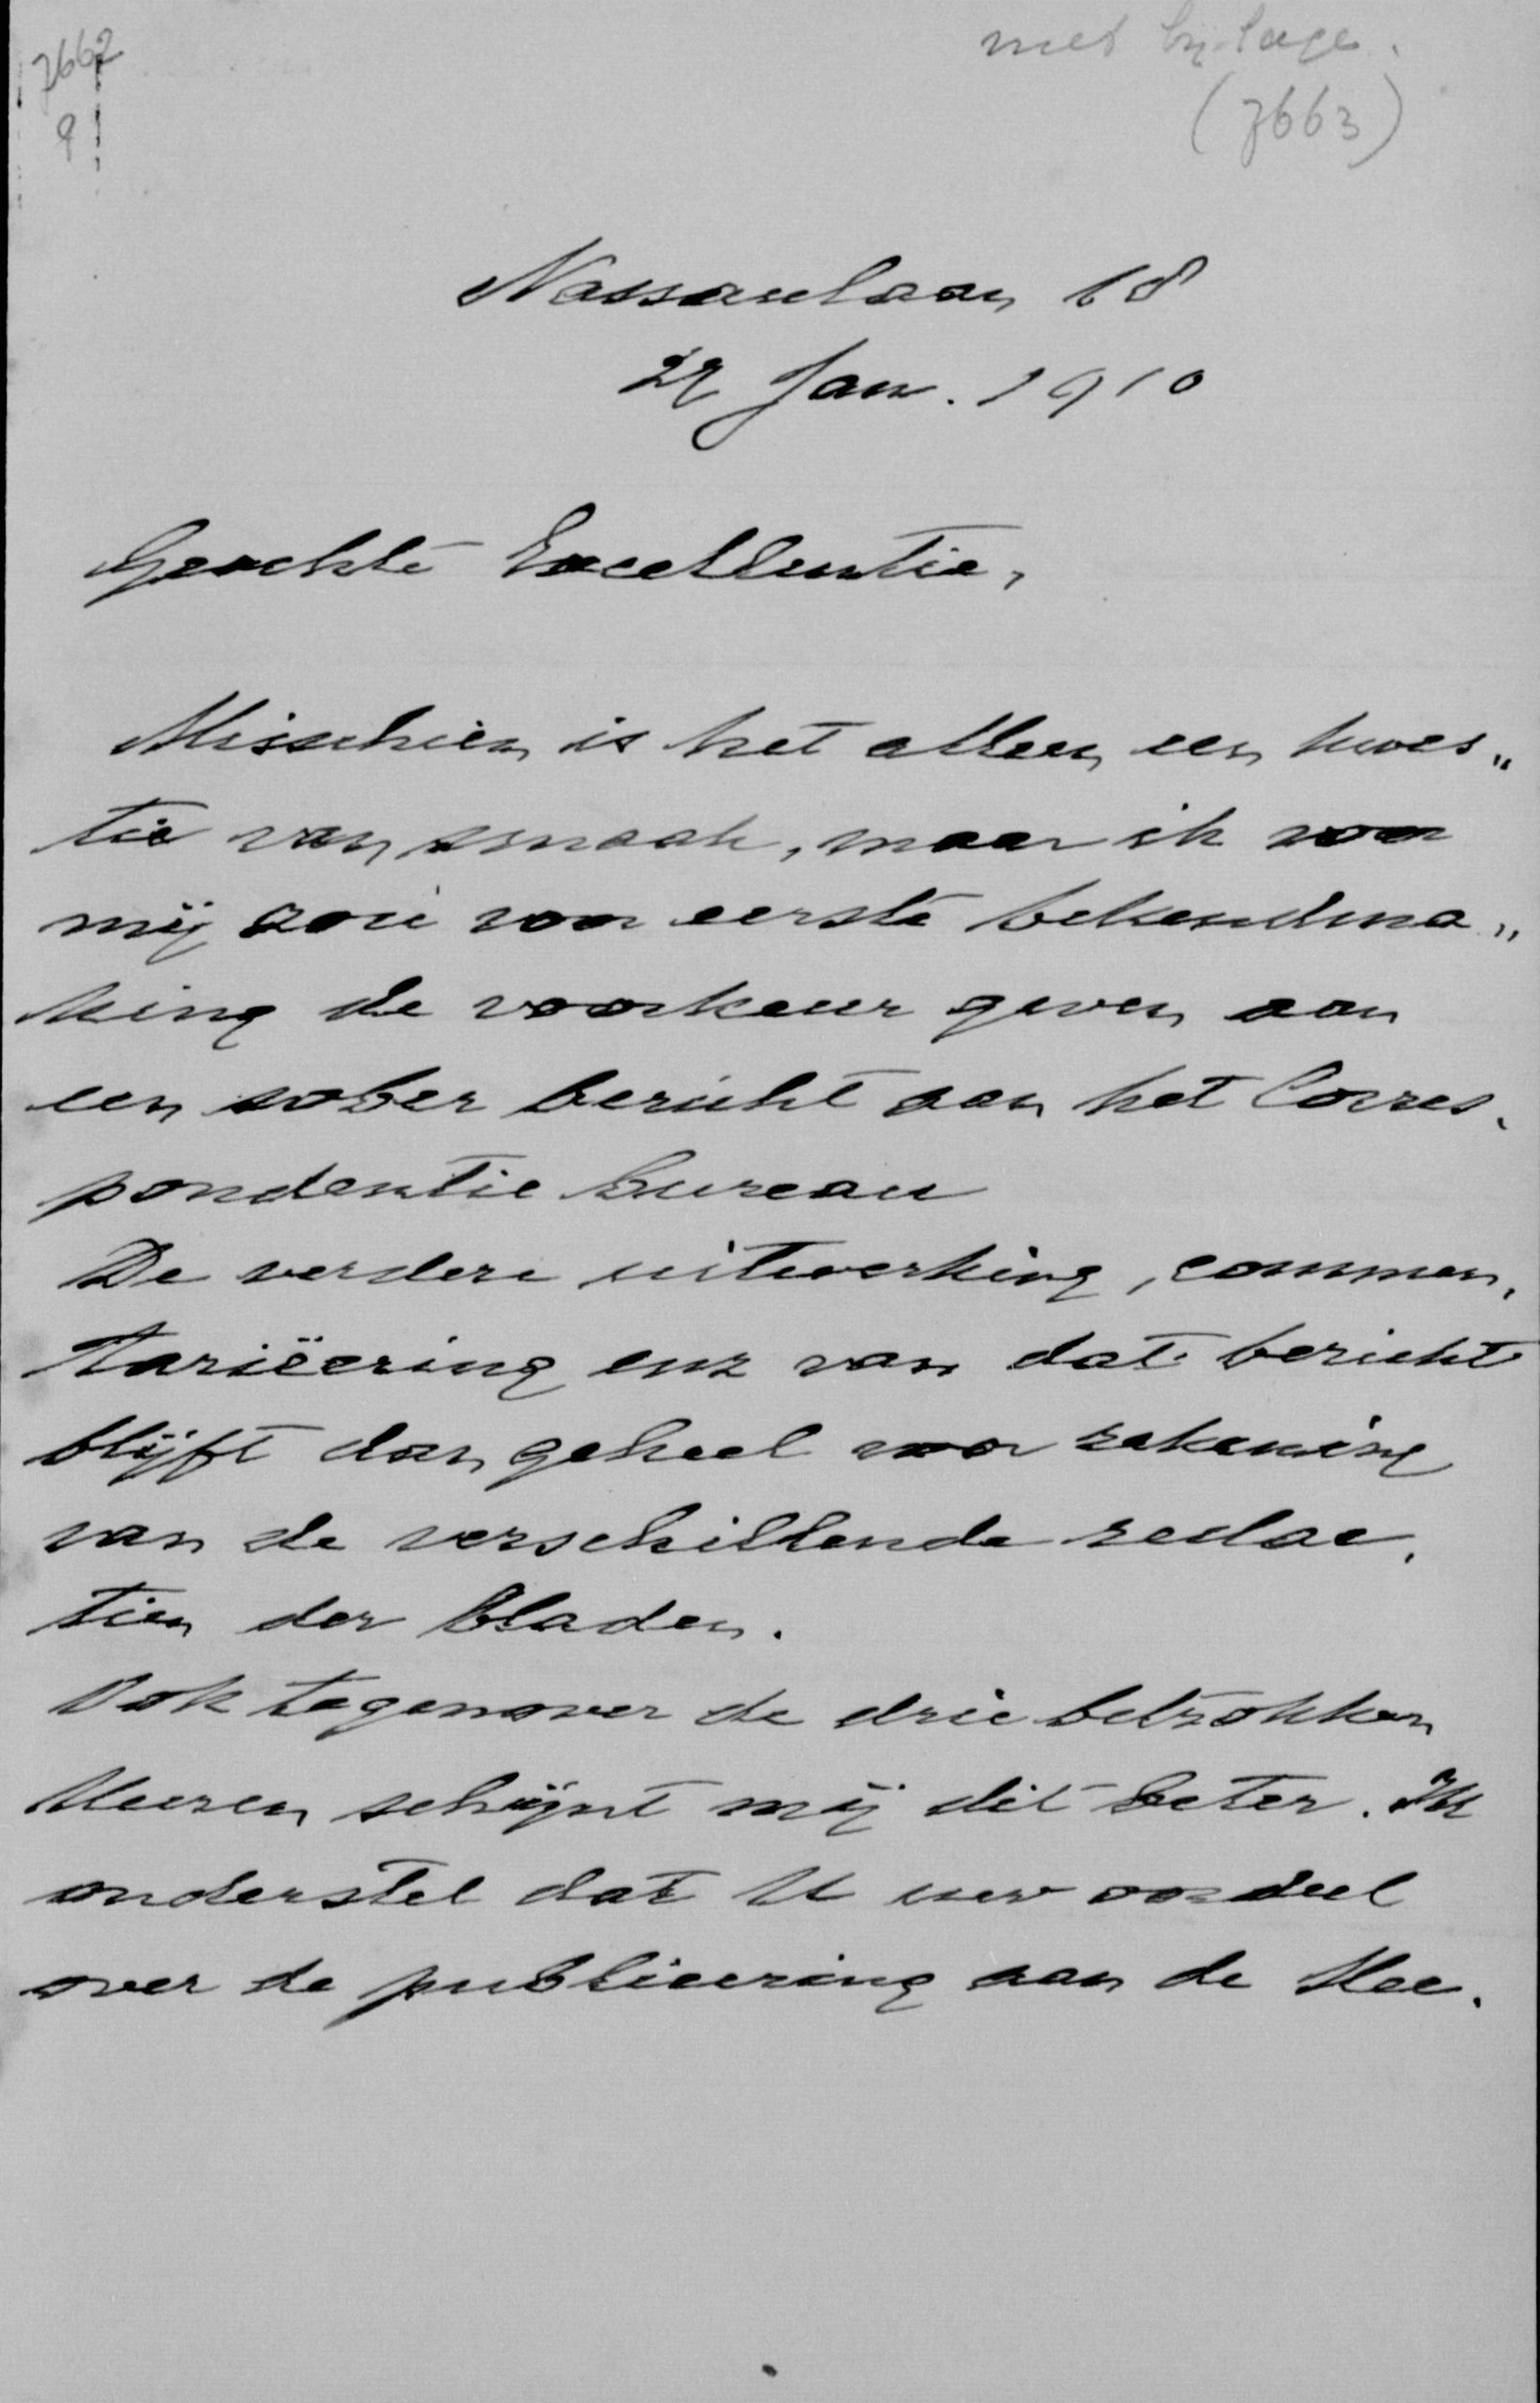 7662
9
met bijlage.
(7663)
Nassaulaan 18
22 Jan. 1910
Geachte Excellentie,
Misschien is het alleen een kwes„
tie van smaak, maar ik voor
mij zou voor eerste bekendma„
king de voorkeur geven aan
een sober bericht aan het Corres.
pondentie bureau
De verdere uitwerking, commen.
tariëering enz van dat bericht
blijft dan geheel voor rekening
van de verschillende redac.
tien der bladen.
Ook tegenover de drie betrokken
Heeren schijnt mij dit beter. Ik
onderstel dat U uw oordeel
over de publiceering aan de Hee.